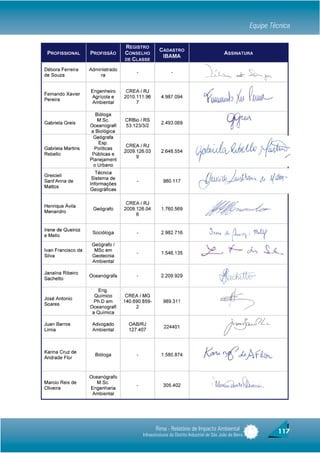 Equipe Técnica
PROFISSIONAL PROFISSÃO REGISTRO CONSELHO DE CLASSE CADASTRO IBAMA ASSINATURA
Débora Ferreira de Souza Administradora - -
Fernando Xavier Pereira Engenheiro Agrícola e Ambiental CREA / RJ 2010.111.967 4.987.094
Gabriela Greis Bióloga M.Sc. Oceanografia Biológica CRBio / RS 53.123/3/D 2.493.069
Gabriela Martins Rebello Geógrafa Esp. Políticas Públicas e Planejamento Urbano CREA / RJ 2009.126.039 2.648.554
Grescieli Sant'Anna de Mattos Técnica Sistema de Informações Geográficas - 980.117
Henrique Ávila Menandro Geógrafo CREA / RJ 2009.126.046 1.760.569
Irene de Queiroz e Mello Socióloga - 2.982.716
Ivan Francisco da Silva Geógrafo / MSc em Geotecnia Ambiental - 1.546.135
Janaina Ribeiro Sachetto Oceanógrafa - 2.209.929
José Antonio Soares Eng. Químico Ph.D em Oceanografia Química CREA / MG 140.690.859-2 989.311
Juan Barros Linia Advogado Ambiental OAB/RJ 127.407 224401
Karina Cruz de Andrade Flor Bióloga - 1.580.874
Marcio Reis de Oliveira Oceanógrafo M.Sc. Engenharia Ambiental - 305.402
Rima - Relatório de Impacto Ambiental
Infraestruturas do Distrito Industrial de São João da Barra
117